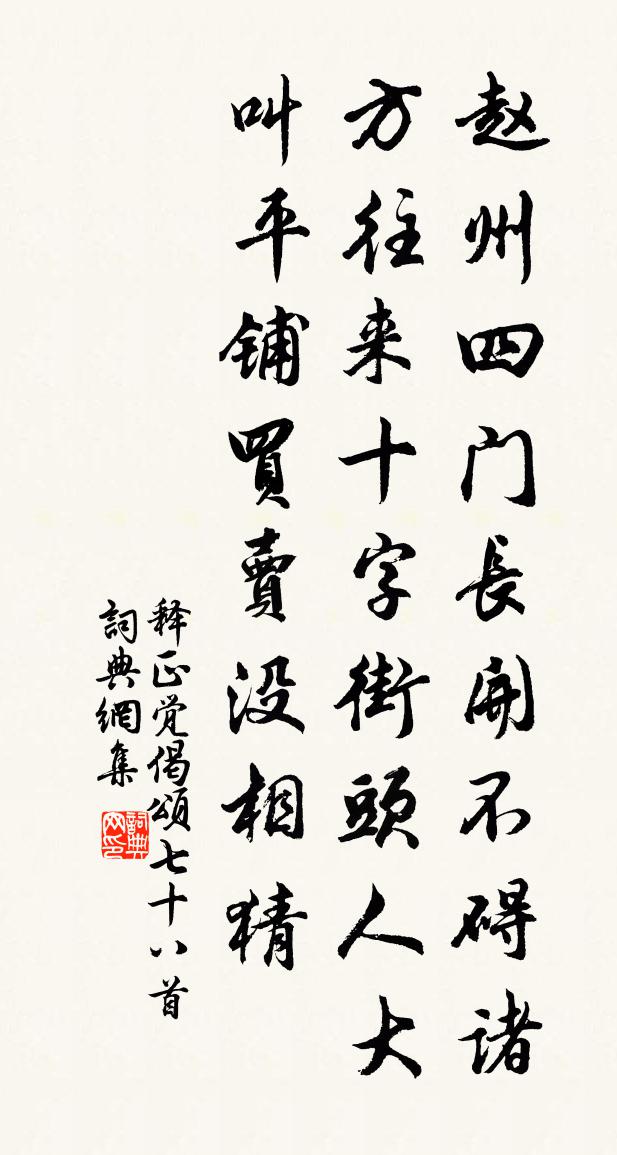 赵州四门長開不碍诸
方往来十字街頭人大
叫平铺買賣没相猜
释正覚偈頌七十八首
詞典網集
詞典网印